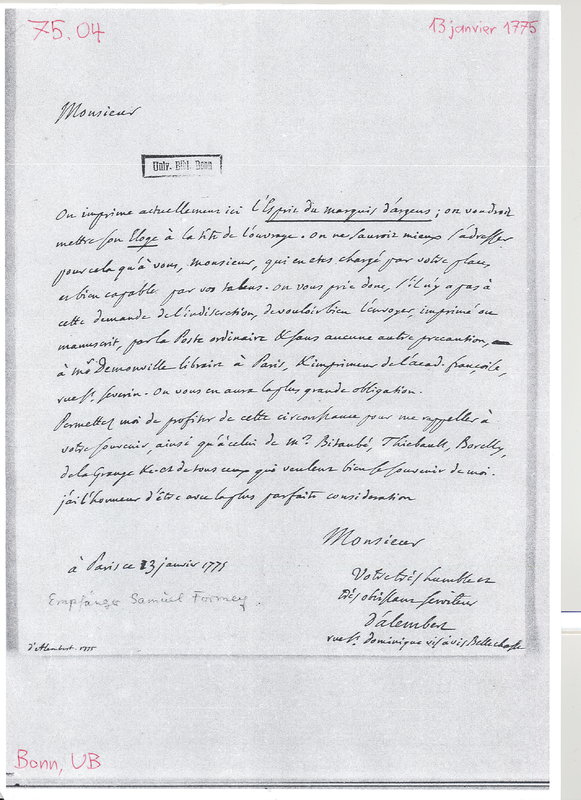 75.04
13 janvier 1775
Monsieur
Univ. Bibl. Bonn
On imprime actuellement ici l'Esprit du marquis d'argens ; on voudroit
mettre son Eloge à la tête de l'ouvrage. On ne sauroit mieux s'adresser
pour cela qu'à vous, monsieur, qui en etes chargé par votre place,
et bien capable par vos talens. On vous prie donc, s'il n'y a pas à
cette demande de l'indiscretion, de vouloir bien l'envoyer, imprimé ou
manuscrit, par la Poste ordinaire & sans aucune autre precaution,
à mr Demonville libraire à Paris, & imprimeur de l'acad. françoise,
rue St. Severin. On vous en aura la plus grande obligation.
Permettez moi de profiter de cette circonstance pour me rappeller à
votre souvenir, ainsi qu'à celui de mrs. Bitaubé, Thiebault, Borelly,
de la Grange &c. et de tous ceux qui veulent bien se souvenir de moi.
j'ai l'honneur d'être avec la plus parfaite consideration
Monsieur
à Paris ce 13 janvier 1775
Votre très humble et
très obéissant serviteur
d'alembert
rue St. dominique vis à vis Bellechasse
Empfänger Samuel Formey.
d'Alembert. 1775
Bonn, UB